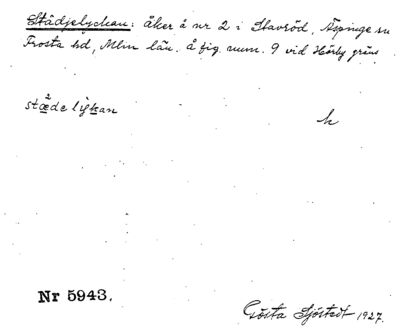 Städjelyckan: åker å nr 2 i Stavröd, Äspinge sn
Frosta hd, Mlm län. å fig. num. 9 vid Hörby gräns
stædelykan
h
Nr 5943.
Gösta Sjöstedt 1927.